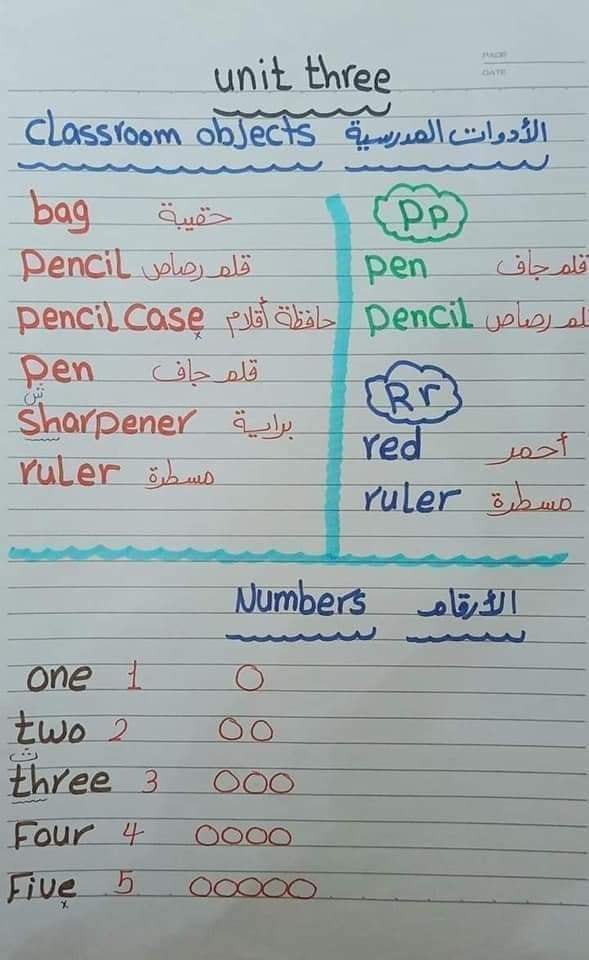 PAGE
DATE
unit three
Classroom objects الأدوات المدرسية
bag حقيبة
Pencil قلم رصاص
pencil Case حافظة أقلام
x
Pen قلم جاف
ش
Sharpener براية
ruler مسطرة
Pp
pen قلم جاف
Pencil قلم رصاص
Rr
red أحمر
ruler مسطرة
Numbers الأرقام
one 1
two 2
ث
three 3
Four 4
Five 5
x